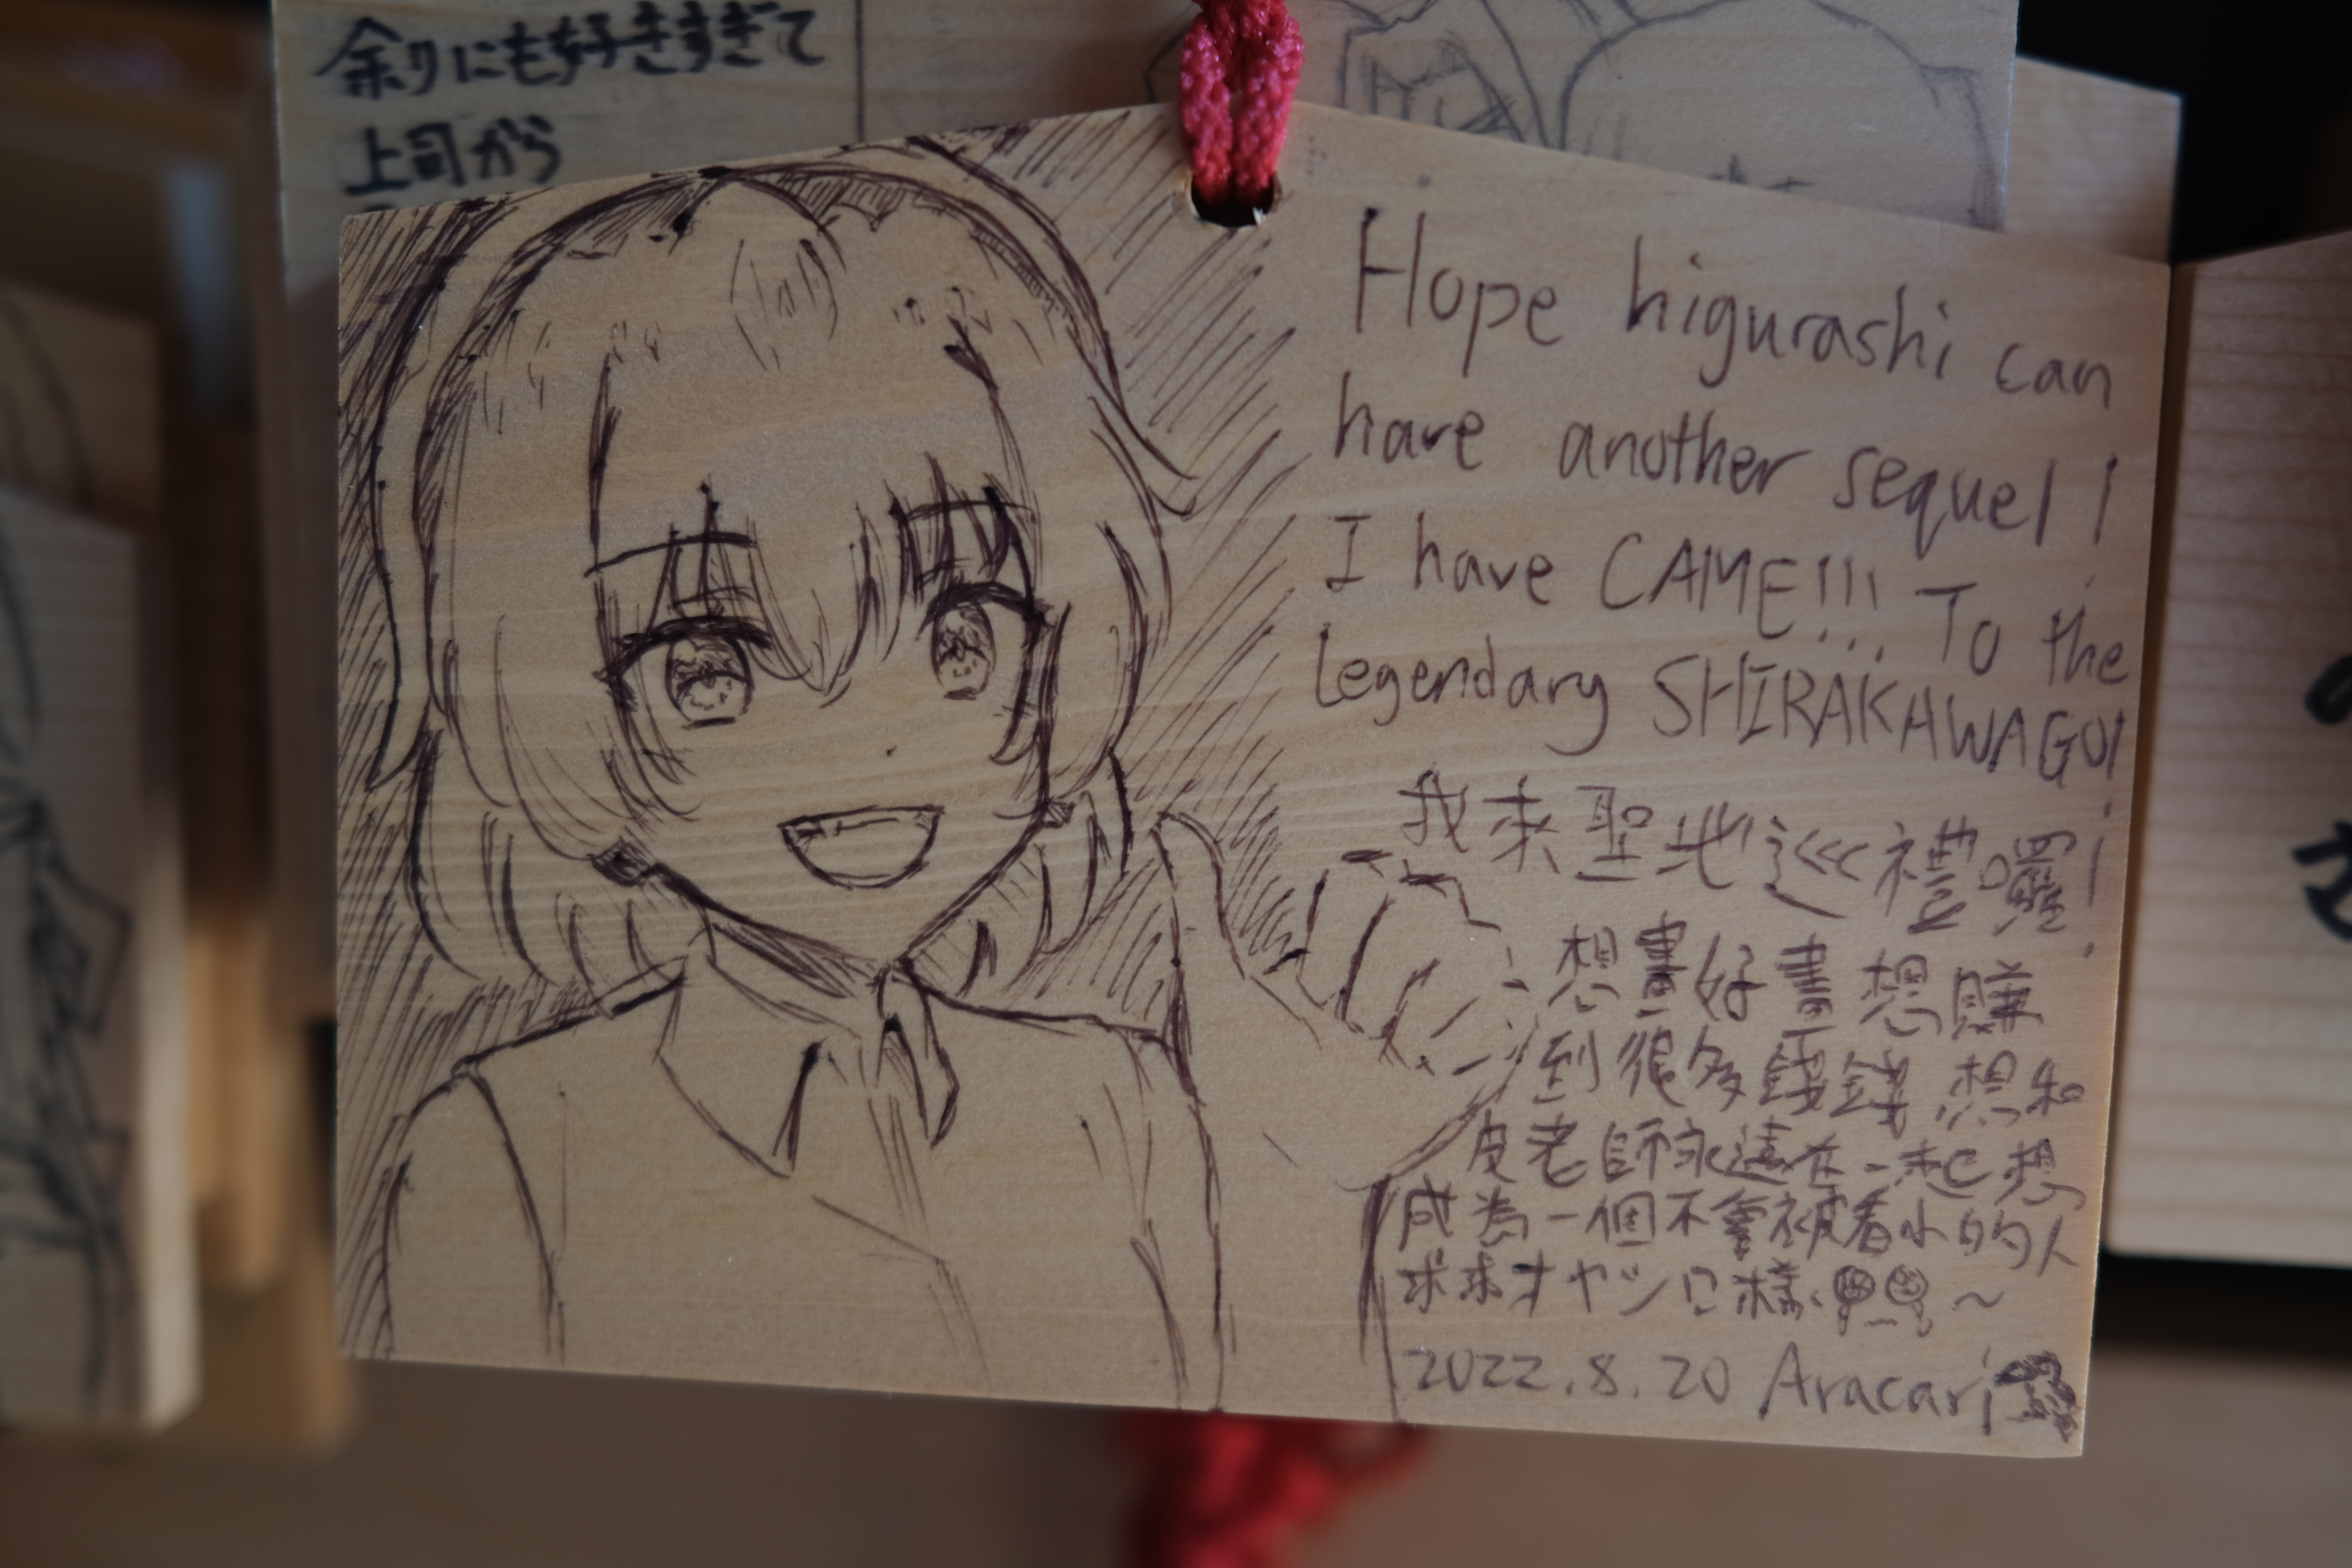 余りにも好きすぎて
上司から
Hope higurashi can
have another sequel!
I have CAME!!! To the
legendary SHIRAKAWAGO!
我來聖地巡禮囉!
想畫好畫想賺
到很多錢錢想和
皮老師永遠在一起想
成為一個不會被看小的人
求求オヤシロ様
2022.8.20 Aracari